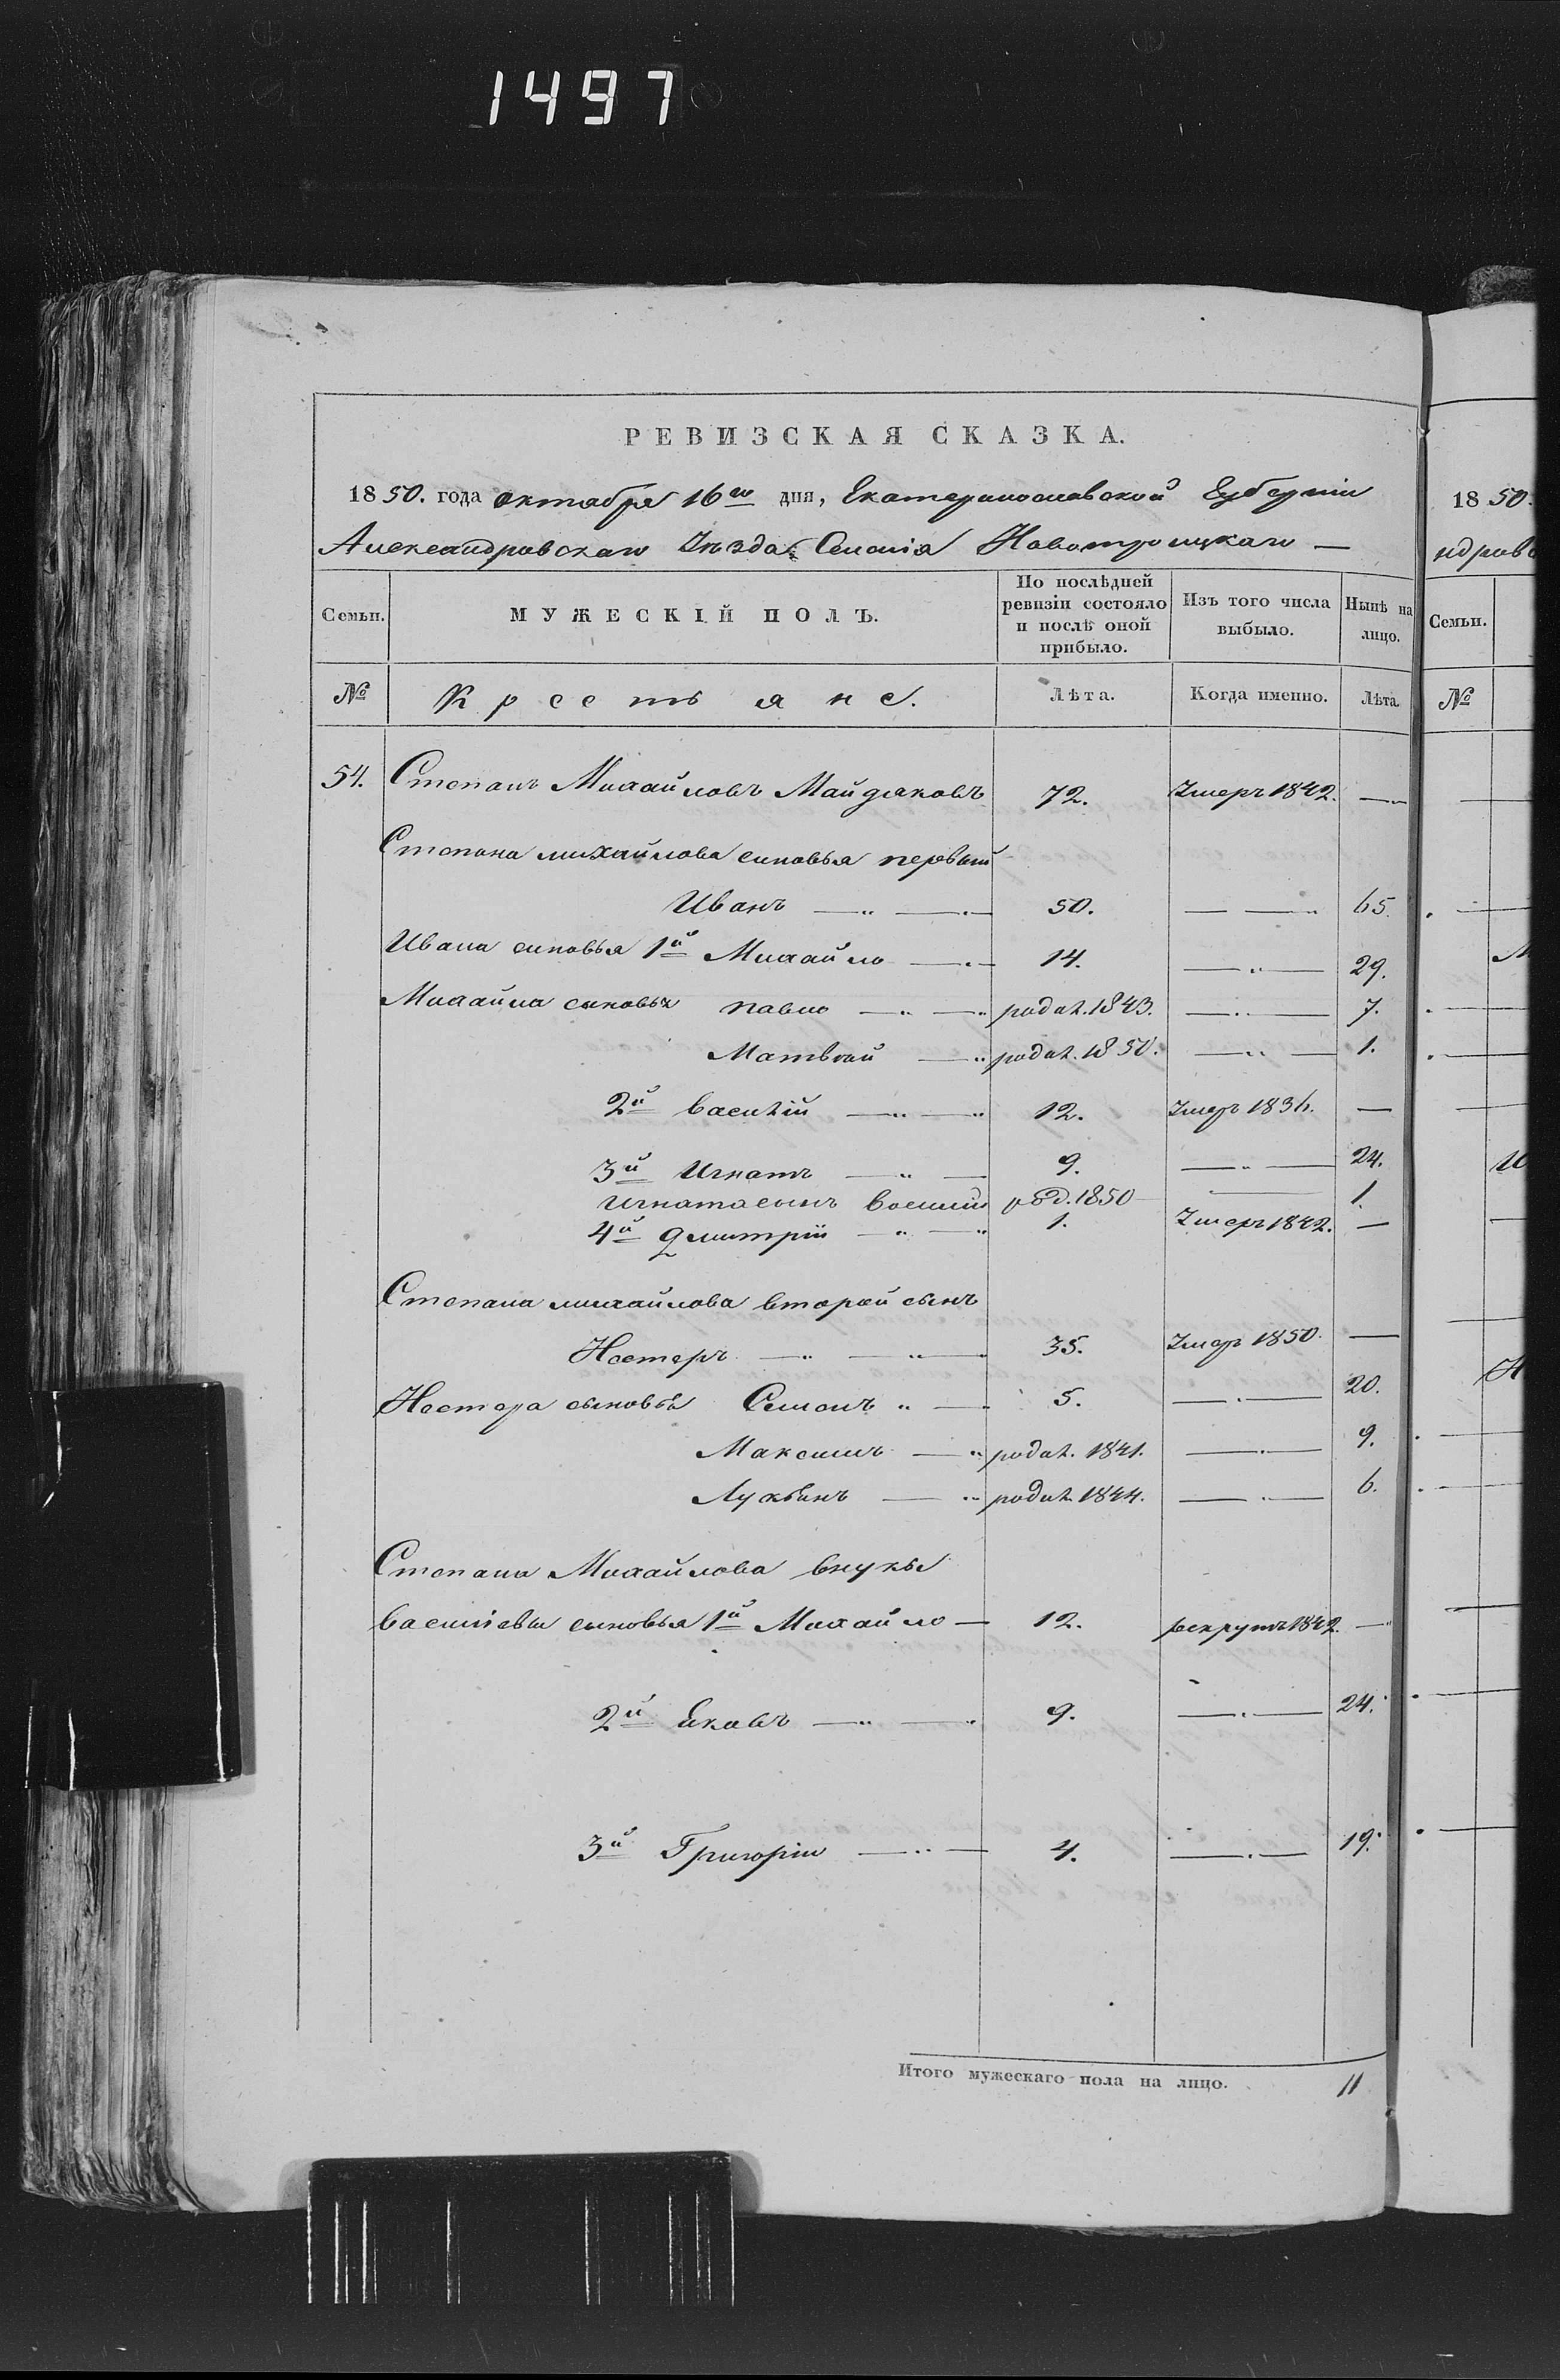 1497
РЕВИЗСКАЯ СКАЗКА.
1850. года октября 16го дня, Екатеринославской Губерніи
Александровскаго Уѣзда Селенія Новотроицкаго —
Семьи. МУЖЕСКІЙ ПОЛЪ. По послѣдней ревизіи состояло и послѣ оной прибыло. Изъ того числа выбыло. Нынѣ на лицо.
№ Крестьяне. Лѣта. Когда именно. Лѣта.
54. Степанъ Михайловъ Майдаковъ 72. Умеръ 1842. —
Степана михайлова сыновья первый
Иванъ — 50. — 65.
Ивана сыновья 1й Михайло — 14. — 29.
Михайла сыновья павло — родил. 1843. — 7.
Матвѣй — родил. 1850. — 1.
2й василій — 12. Умеръ 1836. —
3й Игнатъ — 9. — 24.
Игната сынъ василій род. 1850 — 1.
4й дмитрій — 1. Умеръ 1842. —
Степана михайлова второй сынъ
Нестеръ — 35. Умеръ 1850. —
Нестера сыновья Семенъ — 5. — 20.
Максимъ — родил. 1841. — 9.
Лукьянъ — родил. 1844. — 6.
Степана Михайлова внуки
василіевы сыновья 1й Михайло — 12. рекрутъ 1842. —
2й Яковъ — 9. — 24.
3й Григорій — 4. — 19.
Итого мужескаго пола на лицо. 11
1850.
ндровс
Семьи.
№